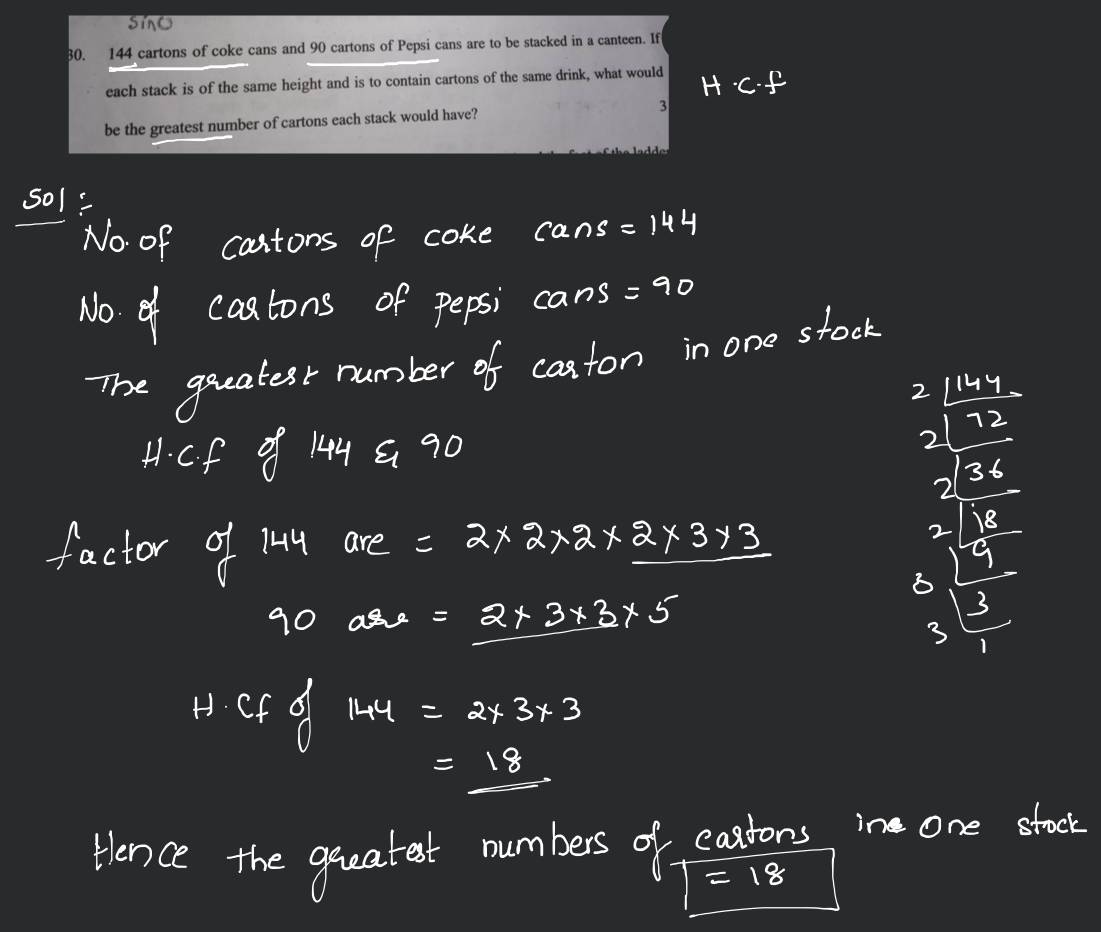 Sino
30. 144 cartons of coke cans and 90 cartons of Pepsi cans are to be stacked in a canteen. If
each stack is of the same height and is to contain cartons of the same drink, what would
be the greatest number of cartons each stack would have? 3
H.C.f
Sol :-
No. of cartons of coke cans = 144
No. of cartons of pepsi cans = 90
The greatest number of carton in one stock
H.C.f of 144 & 90
factor of 144 are = 2×2×2×2×3×3
90 are = 2×3×3×5
H.Cf of 144 = 2×3×3
= 18
Hence the greatest numbers of cartons in one stock
= 18
2 144
2 72
2 36
2 18
3 9
3 3
1